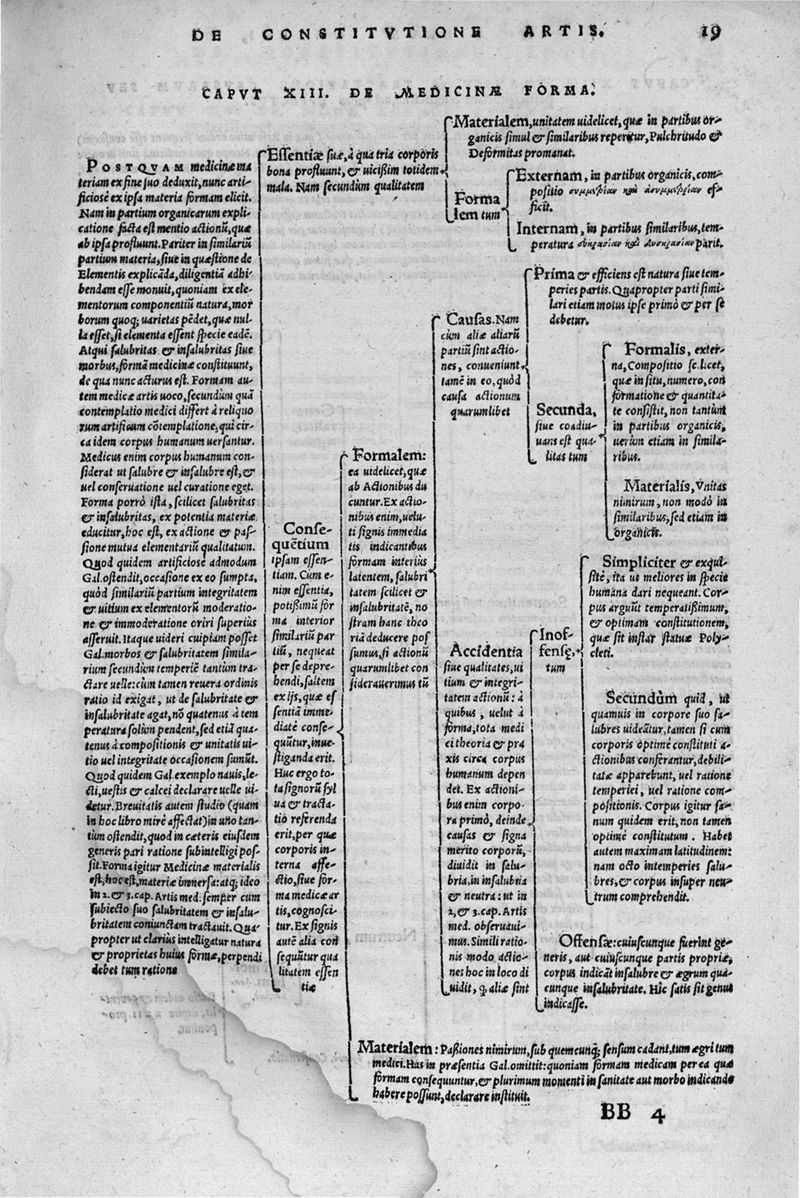 DE CONSTITVTIONE ARTIS. 19
CAPVT XIII. DE MEDICINÆ FORMA.
POSTQVAM medicinæ ma
teriam ex fine suo deduxit, nunc arti-
ficiosè ex ipsa materia formam elicit.
Nam in partium organicarum expli-
catione facta est mentio actionũ, quæ
ab ipsa profluunt. Pariter in similariũ
partium materia, siue in quæstione de
Elementis explicãda, diligentiã adhi-
bendam esse monuit, quoniam ex ele-
mentorum componentiũ natura, mor
borum quoq; uarietas pẽdet, quæ nul-
la esset, si elementa essent specie eadẽ.
Atqui salubritas & insalubritas siue
morbus, formã medicinæ constituunt,
de qua nunc acturus est. Formam au-
tem medicæ artis uoco, secundùm quã
contemplatio medici differt à reliquo
rum artificum cõtemplatione, qui cir-
ca idem corpus humanum uersantur.
Medicus enim corpus humanum con-
siderat ut salubre & insalubre est, &
uel conseruatione uel curatione eget.
Forma porrò ista, scilicet salubritas
& insalubritas, ex potentia materiæ
educitur, hoc est, ex actione & pas-
sione mutua elementariũ qualitatum.
Quod quidem artificiosè admodum
Gal. ostendit, occasione ex eo sumpta,
quòd similariũ partium integritatem
& uitium ex elementorũ moderatio-
ne & immoderatione oriri superius
asseruit. Itaque uideri cuipiam posset
Gal. morbos & salubritatem simila-
rium secundùm temperiẽ tantùm tra-
ctare uelle: cùm tamen reuera ordinis
ratio id exigat, ut de salubritate &
insalubritate agat, nõ quatenus à tem
peratura solùm pendent, sed etiã qua-
tenus à compositionis & unitatis ui-
tio uel integritate occasionem sumũt.
Quod quidem Gal. exemplo nauis, le-
cti, uestis & calcei declarare uelle ui-
detur. Breuitatis autem studio (quam
in hoc libro mirè affectat) in uno tan-
tùm ostendit, quod in cæteris eiusdem
generis pari ratione subintelligi pos-
sit. Forma igitur Medicinæ materialis
est, hoc est, materiæ immersa: atq; ideo
in 2. & 3. cap. Artis med. semper cum
subiecto suo salubritatem & insalu-
britatem coniunctam tractauit. Qua-
propter ut clarius intelligatur natura
& proprietas huius formæ, perpendi
debet tum ratione
Essentiæ suæ, à qua tria corporis
bona profluunt, & uicissim totidem
mala. Nam secundùm qualitatem
Materialem, unitatem uidelicet, quæ in partibus or-
ganicis simul & similaribus reperitur, Pulchritudo &
Deformitas promanat.
Forma
lem tum
Externam, in partibus organicis, com-
positio συμμετρίαν καὶ ἀσυμμετρίαν ef-
ficit.
Internam, in partibus similaribus, tem-
peratura εὐκρασίαν καὶ δυσκρασίαν parit.
Conse-
quẽtium
ipsam essen-
tiam. Cum e-
nim essentia,
potissimũ for
ma interior
similariũ par
tiũ, nequeat
per se depre-
hendi, saltem
ex ijs, quæ es
sentiã imme-
diatè conse-
quũtur, inue-
stiganda erit.
Huc ergo to-
ta signorũ syl
ua & tracta-
tio referenda
erit, per quæ
corporis in-
terna affe-
ctio, siue for-
ma medicæ ar
tis, cognosci-
tur. Ex signis
autẽ alia con
sequũtur qua
litatem essen
tiæ
Formalem:
ea uidelicet, quæ
ab Actionibus du
cuntur. Ex actio-
nibus enim, uelu-
ti signis immedia
tis indicantibus
formam interius
latentem, salubri
tatem scilicet &
insalubritatẽ, no
stram hanc theo
riã deducere pos
sumus, si actionũ
quarumlibet con
siderauerimus tũ
Causas. Nam
cùm aliæ aliarũ
partiũ sint actio-
nes, conueniunt
tamẽ in eo, quòd
causa actionum
quarumlibet
Prima & efficiens est natura siue tem-
peries partis. Quapropter parti simi-
lari etiam motus ipse primò & per se
debetur.
Secunda,
siue coadiu-
uans est qua-
litas tum
Formalis, exter-
na, Compositio scilicet,
quæ in situ, numero, con
formatione & quantita-
te consistit, non tantùm
in partibus organicis,
uerùm etiam in simila-
ribus.
Materialis, Vnitas
nimirum, non modò in
similaribus, sed etiam in
organicis.
Accidentia
siue qualitates, ui
tium & integri-
tatem actionũ: à
quibus, uelut à
forma, tota medi
ci theoria & pra
xis circa corpus
humanum depen
det. Ex actioni-
bus enim corpo-
ra primò, deinde
causas & signa
merito corporũ,
diuidit in salu-
bria, in insalubria
& neutra: ut in
2, & 3. cap. Artis
med. obseruaui-
mus. Simili ratio-
nis modo actio-
nes hoc in loco di
uidit, ꝙ aliæ sint
Inof-
fensæ,
tum
Simpliciter & exqui-
sitè, ita ut meliores in specie
humana dari nequeant. Cor-
pus arguũt temperatissimum,
& optimam constitutionem,
quæ sit instar statuæ Poly-
cleti.
Secundùm quid, ut
quamuis in corpore suo sa-
lubres uideãtur, tamen si cum
corporis optimè constituti a-
ctionibus conferantur, debili-
tatæ apparebunt, uel ratione
temperiei, uel ratione com-
positionis. Corpus igitur sa-
num quidem erit, non tamen
optimè constitutum. Habet
autem maximam latitudinem:
nam octo intemperies salu-
bres, & corpus insuper neu-
trum comprehendit.
Offensæ: cuiuscunque fuerint ge-
neris, aut cuiuscunque partis propriæ,
corpus indicãt insalubre & ægrum qua-
cunque insalubritate. Hîc satis sit genus
indicasse.
Materialem: Passiones nimirum, sub quemcunq; sensum cadant, tum ægri tum
medici. Has in præsentia Gal. omittit: quoniam formam medicam per ea quæ
formam consequuntur, & plurimum momenti in sanitate aut morbo indicando
habere possunt, declarare instituit.
BB 4